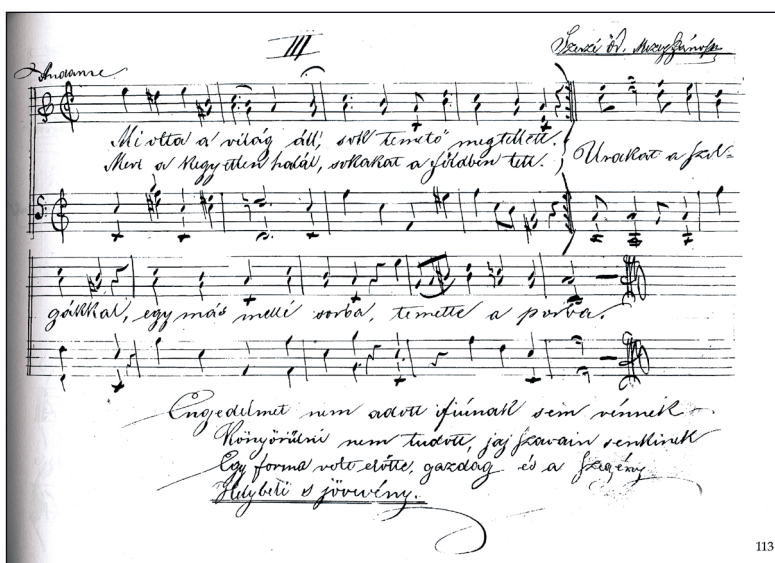 III
Szerzé id.
Andante
Mi olta a' világ áll, sok temető megtellett.
Mert a kegyetlen halál, sokakat a földben tett. Urakat a szol-
gákkal, egy más mellé sorba, temette a porba.
Engedelmet nem adott ifiúnak sem vénnek
Könyörülni nem tudott, jaj szavain senkinek
Egy forma volt előtte, gazdag és a szegény
Helybéli s jövevény.
113